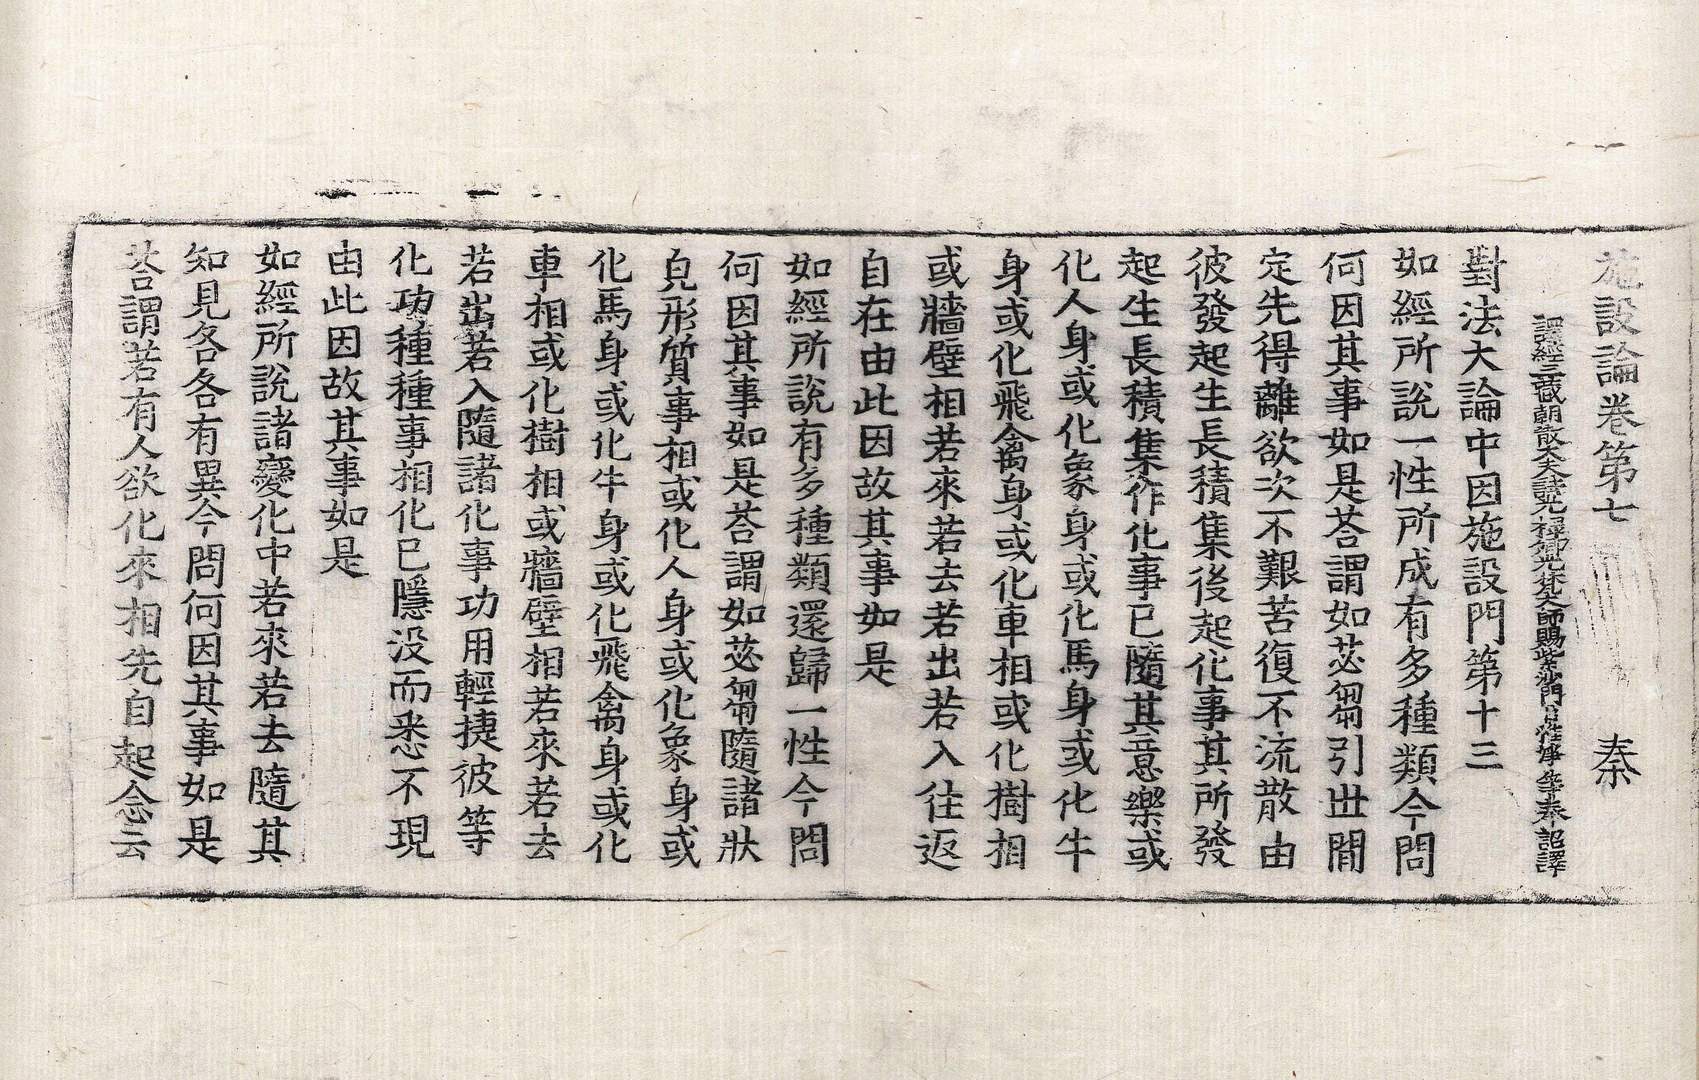 施設論卷第七 秦
譯經三藏朝散大夫試光祿卿光梵大師賜紫沙門臣惟淨等奉詔譯
對法大論中因施設門第十三
如經所說一性所成有多種類今問
何因其事如是荅謂如苾芻引世間
定先得離欲次不艱苦復不流散由
彼發起生長積集後起化事其所發
起生長積集作化事已隨其意樂或
化人身或化象身或化馬身或化牛
身或化飛禽身或化車相或化樹相
或牆壁相若來若去若出若入往返
自在由此因故其事如是
如經所說有多種類還歸一性今問
何因其事如是荅謂如苾芻隨諸狀
皃形質事相或化人身或化象身或
化馬身或化牛身或化飛禽身或化
車相或化樹相或牆壁相若來若去
若出若入隨諸化事功用輕捷彼等
化功種種事相化已隱没而悉不現
由此因故其事如是
如經所說諸變化中若來若去隨其
知見各各有異今問何因其事如是
荅謂若有人欲化來相先自起念云